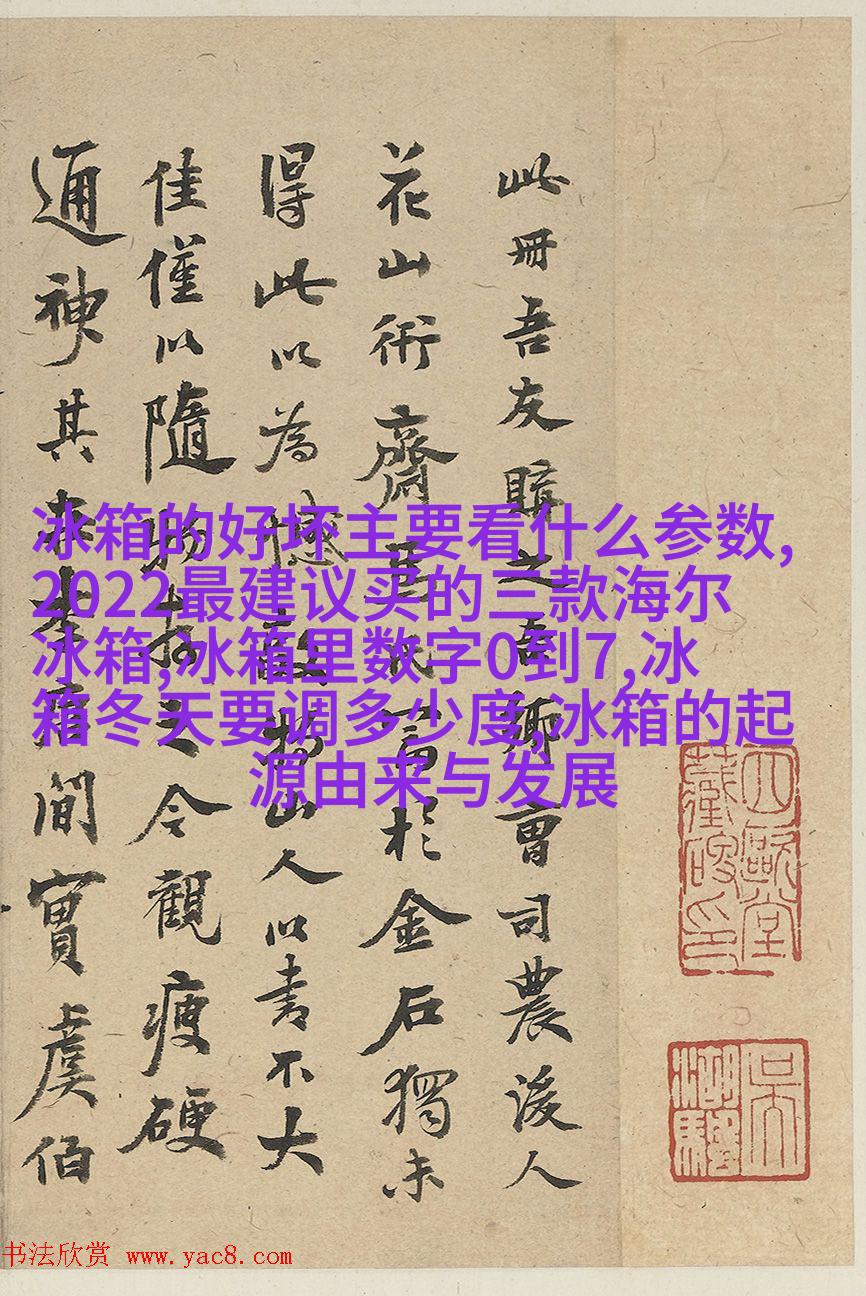 此冊吾友購之吾鄉曹司農後人
花山術齋書氏富於金石獨未
得此以為憾敲山人以書不大
佳僅以隨物指之今觀瘦硬
通神其在李唐間實虞伯
冰箱的好坏主要看什么参数,
2022最建议买的三款海尔
冰箱,冰箱里数字0到7,冰
箱冬天要调多少度,冰箱的起
源由来与发展
书法欣赏 www.yac8.com